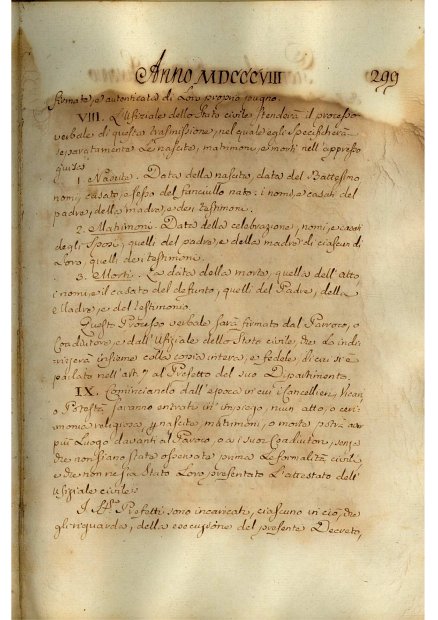 Anno MDCCCVIII 299
firmata, e autenticata di Loro proprio pugno.
VIII. L'Ufiziale dello Stato civile stenderà il processo
verbale di questa trasmissione, nel quale egli specificherà
separatamente Le nascite, matrimoni, e morti nell'appresso
guisa
1. Nascite. Data della nascita, data del Battesimo
nomi, casato, e sesso del fanciullo nato: i nomi, e casati del
padre, della madre, e dei testimoni.
2. Matrimoni. Data della celebrazione, nomi, e casati
degli Sposi, quelli del padre, e della madre di ciascun di
Loro, quelli dei testimoni.
3. Morti. La data della morte, quella dell'atto
i nomi, e il casato del defunto, quelli del Padre, della
Madre, e del testimonio
Questo Processo verbale sarà firmato dal Parroco, o
Coadiutore, e dall'Ufiziale dello Stato civile, che Lo indi
rizzerà insieme colla copia intera, e fedele di cui si è
parlato nell'art. 7 al Prefetto del suo Dipartimento.
IX. Cominciando dall'epoca in cui i Cancellieri, Vicari,
o Potestà saranno entrati in impiego, niun atto, o ceri
monia religiosa, p nascita, matrimoni, o morte potrà aver
più Luogo davanti al Parroco, o ai suoi Coadiutori, senza
che non siano state osservate prima Le formalità civili
e che non ne sia stato Loro presentato L'attestato dell'
Ufiziale civile:
I Prefetti sono incaricati, ciascuno in ciò, che
gli riguarda, della esecuzione del presente Decreto,